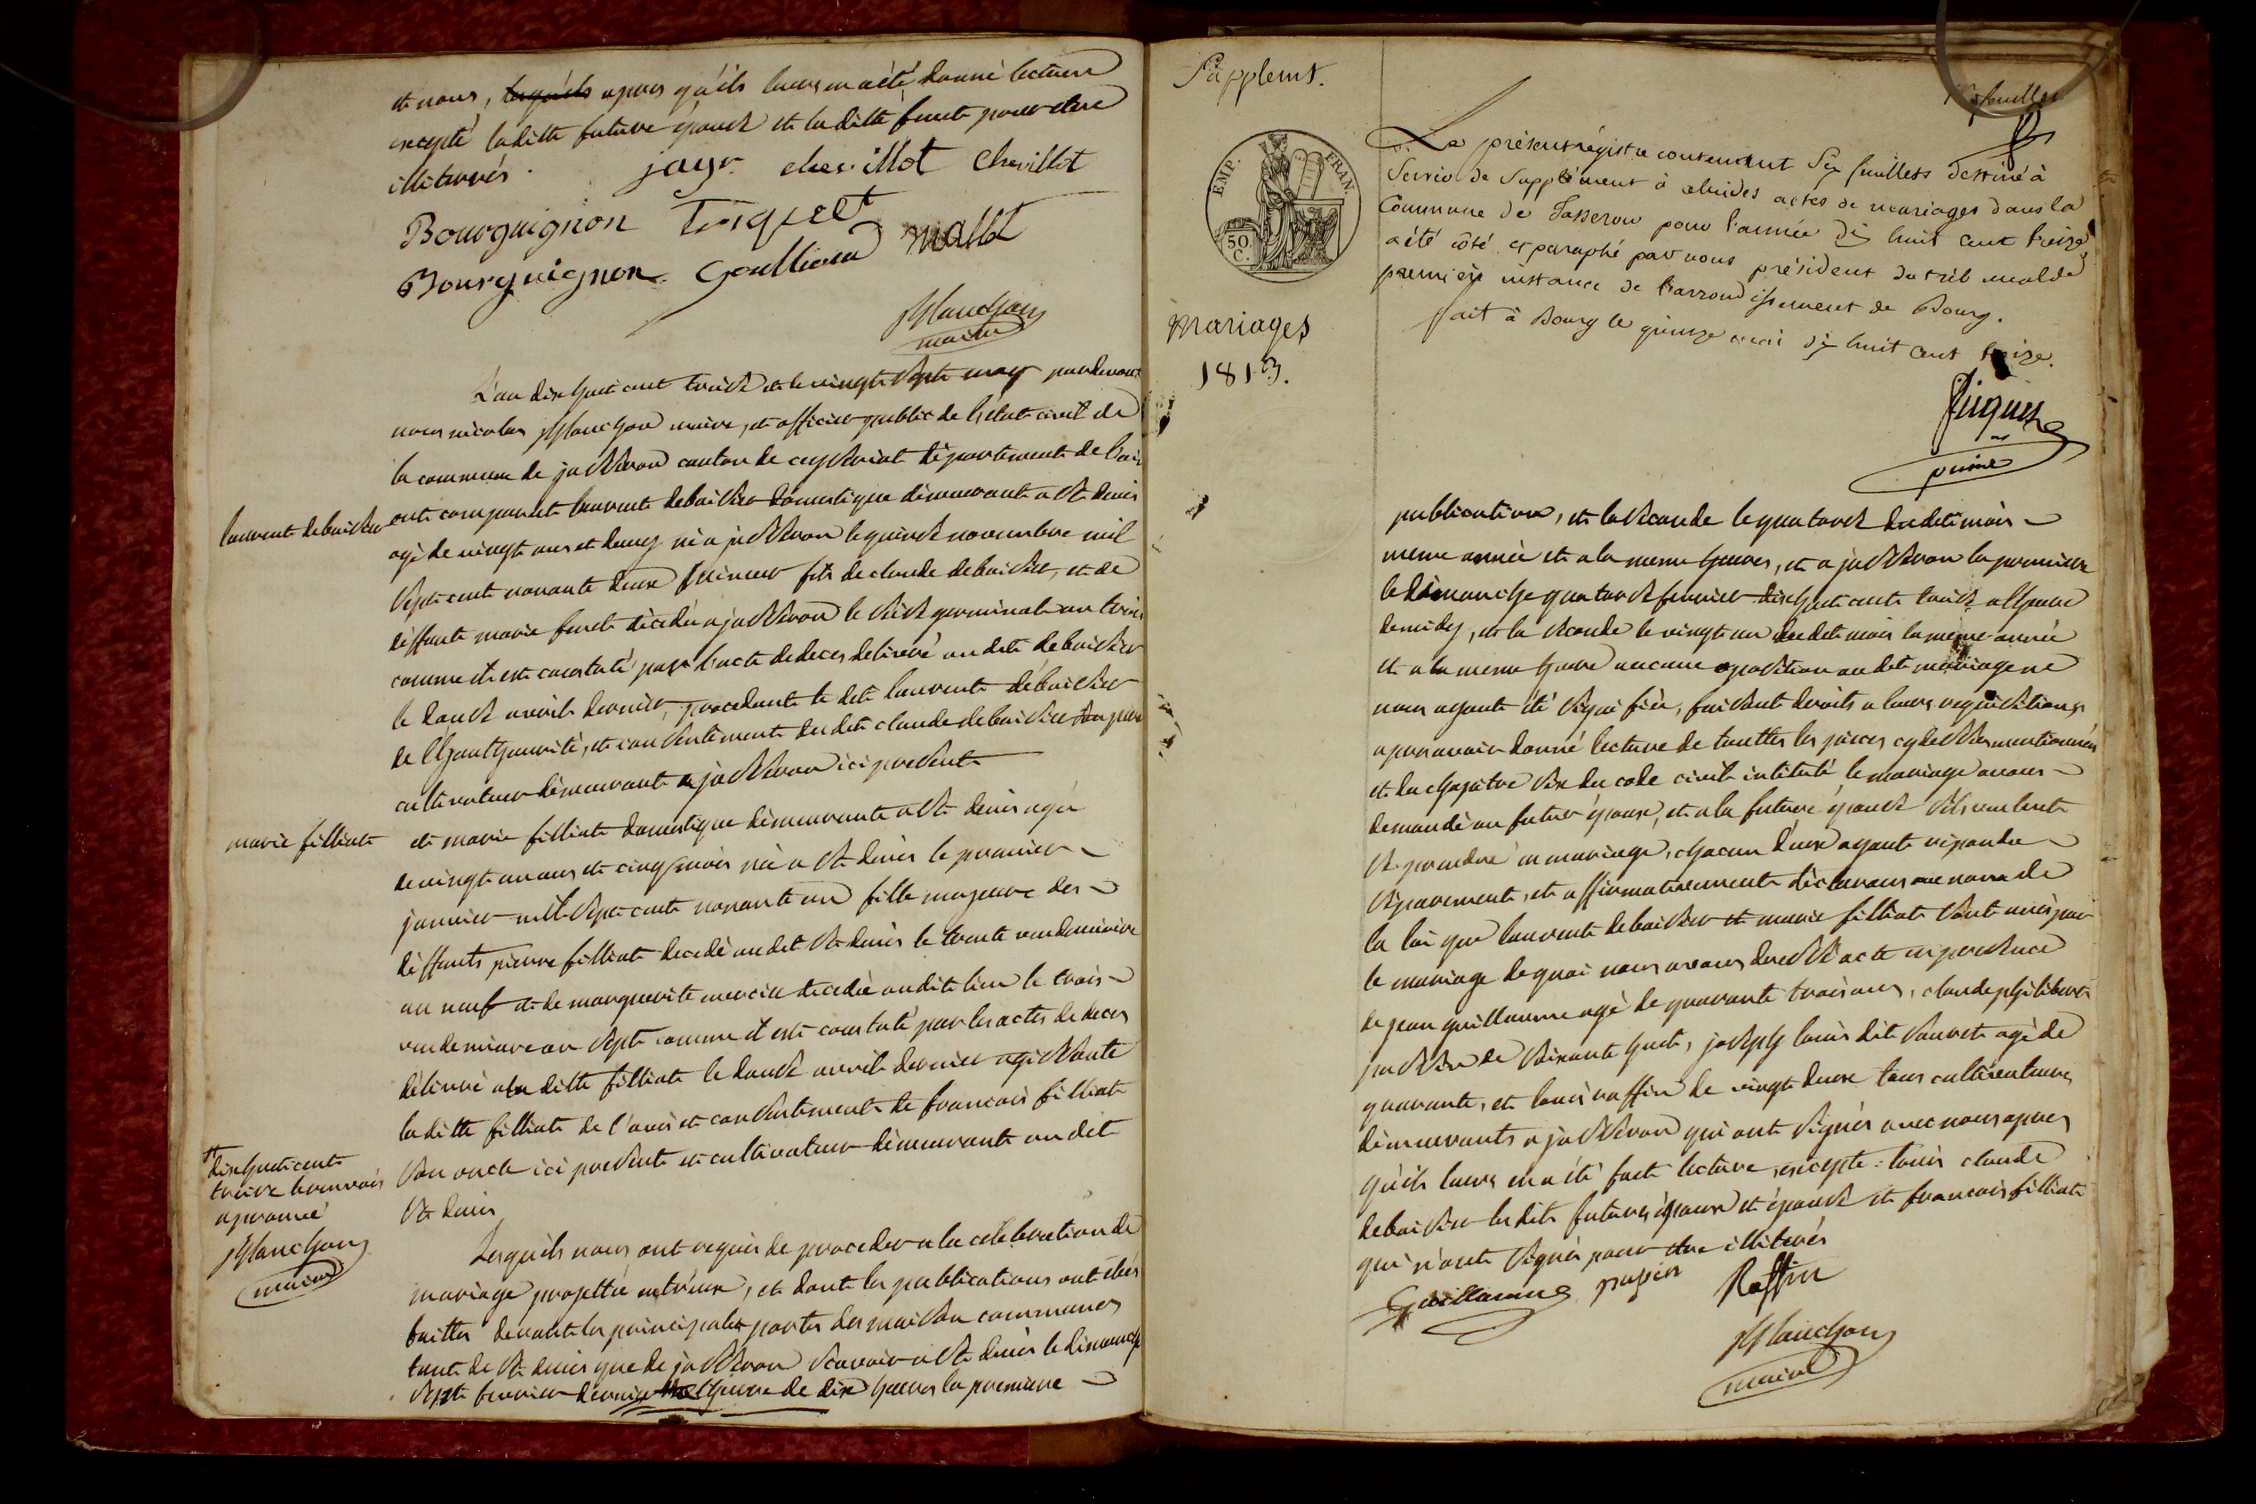 et nous, lesquels apres qu'ils leurs en a été donné lecture
excepté laditte future épouse et laditte furet pour etre
illiterrés. jayr chevillot Chevillot
Bourguignon Tinquet
Bourguignon Goullioud mallet
Planchon
maire
L'an dix huit cent treize et le vingt sept may pardevant
nous nicolas Planchon maire, et officier public de l'etat civil de
la commune de jasseron canton de ceyseriat département de l'ain
ont comparut laurent debaisieu domestique démeurant a St denis
laurent debaisieu
agé de vingt ans et demy né a jasseron le quinze novembre mil
sept cent nonante deux mineur fils de claude debaisieu, et de
deffunte marie furet décédée a jasseron le seize germinal an treize
comme il est constaté par l'acte de deces delivré au dit debaisieu
le douze avril dernier, procedant le dit laurent debaisieu
de l'hauthaurité, et consentement du dit claude debaisieu son pere
cultivateur démeurant a jasseron ici present
marie filliat
et marie filliat domestique démeurante a St denis agée
de vingt un ans et cinq mois née a St denis le premier
janvier mil sept cent nonante un fille majeure des
deffunts pierre filliat decedé au dit St denis le trente vendemiaire
an neuf et de marguerite mercier decedée audit lieu le trois
vendemiaire an sept comme il est constaté par les actes de deces
délivré a la ditte filliat le douze avril dernier agissante
la ditte filliat de l'avis et consentement de francois filliat
son oncle ici present et cultivateur démeurant au dit
St denis
dix huit cent
treize le renvois
aprouvé
Planchon
maire
Lesquels nous ont requis de proceder a la celebration du
mariage projetté entr'eux, et dont les publications ont étés
faittes devant les principales portes des maison communes
tant de St denis que de jasseron scavoir a St denis le dimanche
sept fevrier dernier l'heure de dix heures la premiere
Supplemt.
6 feuillets
EMP. FRAN.
50.
C.
Le présent régistre contenant Six feuillets destiné à
Servir de Supplément à celui des actes de mariages dans la
Commune de Jasseron pour l'année dix huit cent treize
a été côté et paraphé par nous président du tribunal de
première instance de l'arrondissement de Bourg.
fait à Bourg le quinze mai dix huit cent treize.
Mariages
1813.
publication, et la seconde le quatorze du dit mois
meme année et a la meme heures, et a jasseron la premiere
le dimanche quatorze fevrier dix huit cent treize a l'heure
de midy, et la seconde le vingt un du dit mois la même année
et a la meme heure aucune oposition au dit mariage ne
nous ayant été signifiée, faisant droits a leurs requisitions
apres avoir donné lecture de touttes les pieces cy dessus mentionnées
et du chapitre six du code civil intitulé le mariage avons
demandé au futur époux, et a la future épouse s'ils veulent
se prendre en mariage, chacun d'eux ayant repondu
séparement, et affirmativement déclarons au nom de
la loi que laurent debaisieu et marie filliat sont unis par
le mariage de quoi nous avons dressé acte en presence
de jean guillaume agé de quarante trois ans, claude philibert
de soixante huit, joseph louis dit sauvet agé de
quarante, et louis raffin de vingt deux tous cultivateurs
démeurants a jasseron qui ont signés avec nous apres
qu'ils leurs en a été fait lecture, excepté louis claude
debaisieu les dits futures époux et épouse et francois filliat
qui n'ont signés pour etre illiterés
Guillaume Raffin
Planchon
maire